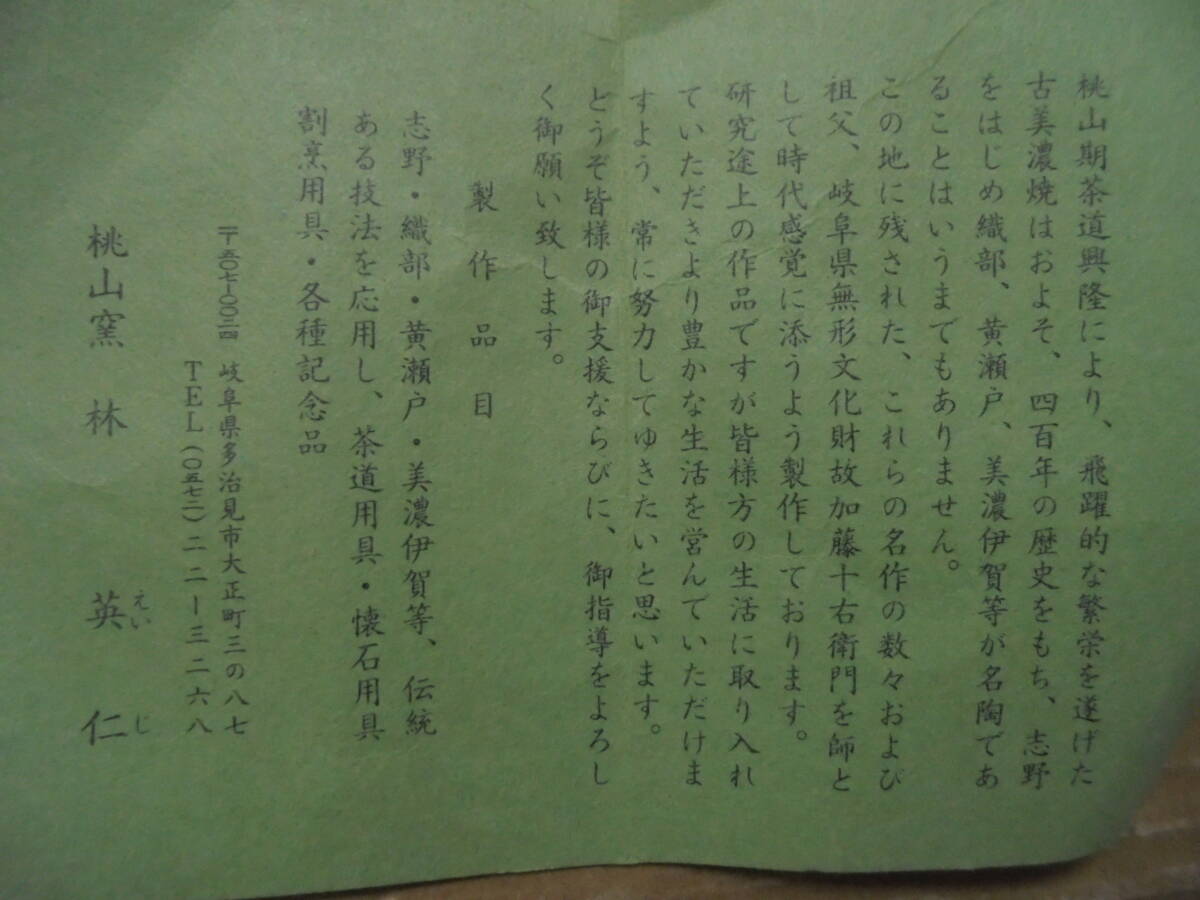 桃山期茶道興隆により、飛躍的な繁栄を遂げた
古美濃焼はおよそ、四百年の歴史をもち、志野
をはじめ織部、黄瀬戸、美濃伊賀等が名陶であ
ることはいうまでもありません。
この地に残された、これらの名作の数々および
祖父、岐阜県無形文化財故加藤十右衛門を師と
して時代感覚に添うよう製作しております。
研究途上の作品ですが皆様方の生活に取り入れ
ていただきより豊かな生活を営んでいただけま
すよう、常に努力してゆきたいと思います。
どうぞ皆様の御支援ならびに、御指導をよろし
く御願い致します。
製作品目
志野・織部・黄瀬戸・美濃伊賀等、伝統
ある技法を応用し、茶道用具・懐石用具
割烹用具・各種記念品
〒五〇七-〇〇三四 岐阜県多治見市大正町三の八七
TEL(〇五七二)二二ー三二六八
桃山窯 林 英仁
えいじ